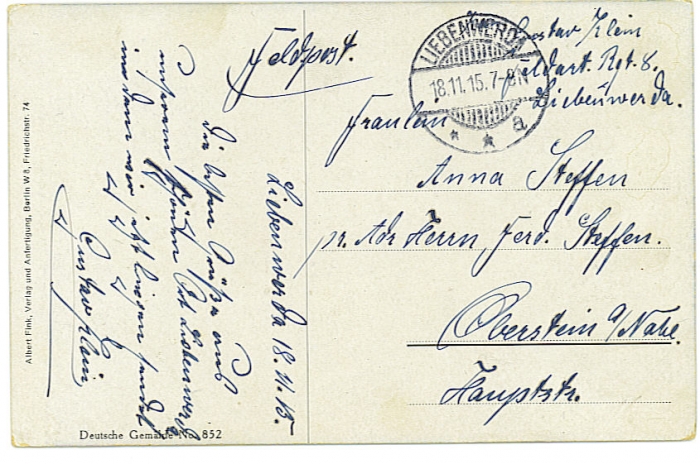 Feldpost.
Liebenwerda 18.11.15.
Die besten Grüße aus
unserem schönen Bad Liebenwerda
wir jetzt liegen sendet
Gustav Klein
LIEBENWERDA
18.11.15.7-8N
* * a
Gustav Klein
Feldart. Rgt. 8.
Liebenwerda.
Fräulein
Anna Steffen
pr. Adr Herrn Ferd. Steffen.
Oberstein a/Nahe.
Hauptstr.
Albert Fink, Verlag und Anfertigung, Berlin W8, Friedrichstr. 74
Deutsche Gemälde No. 852